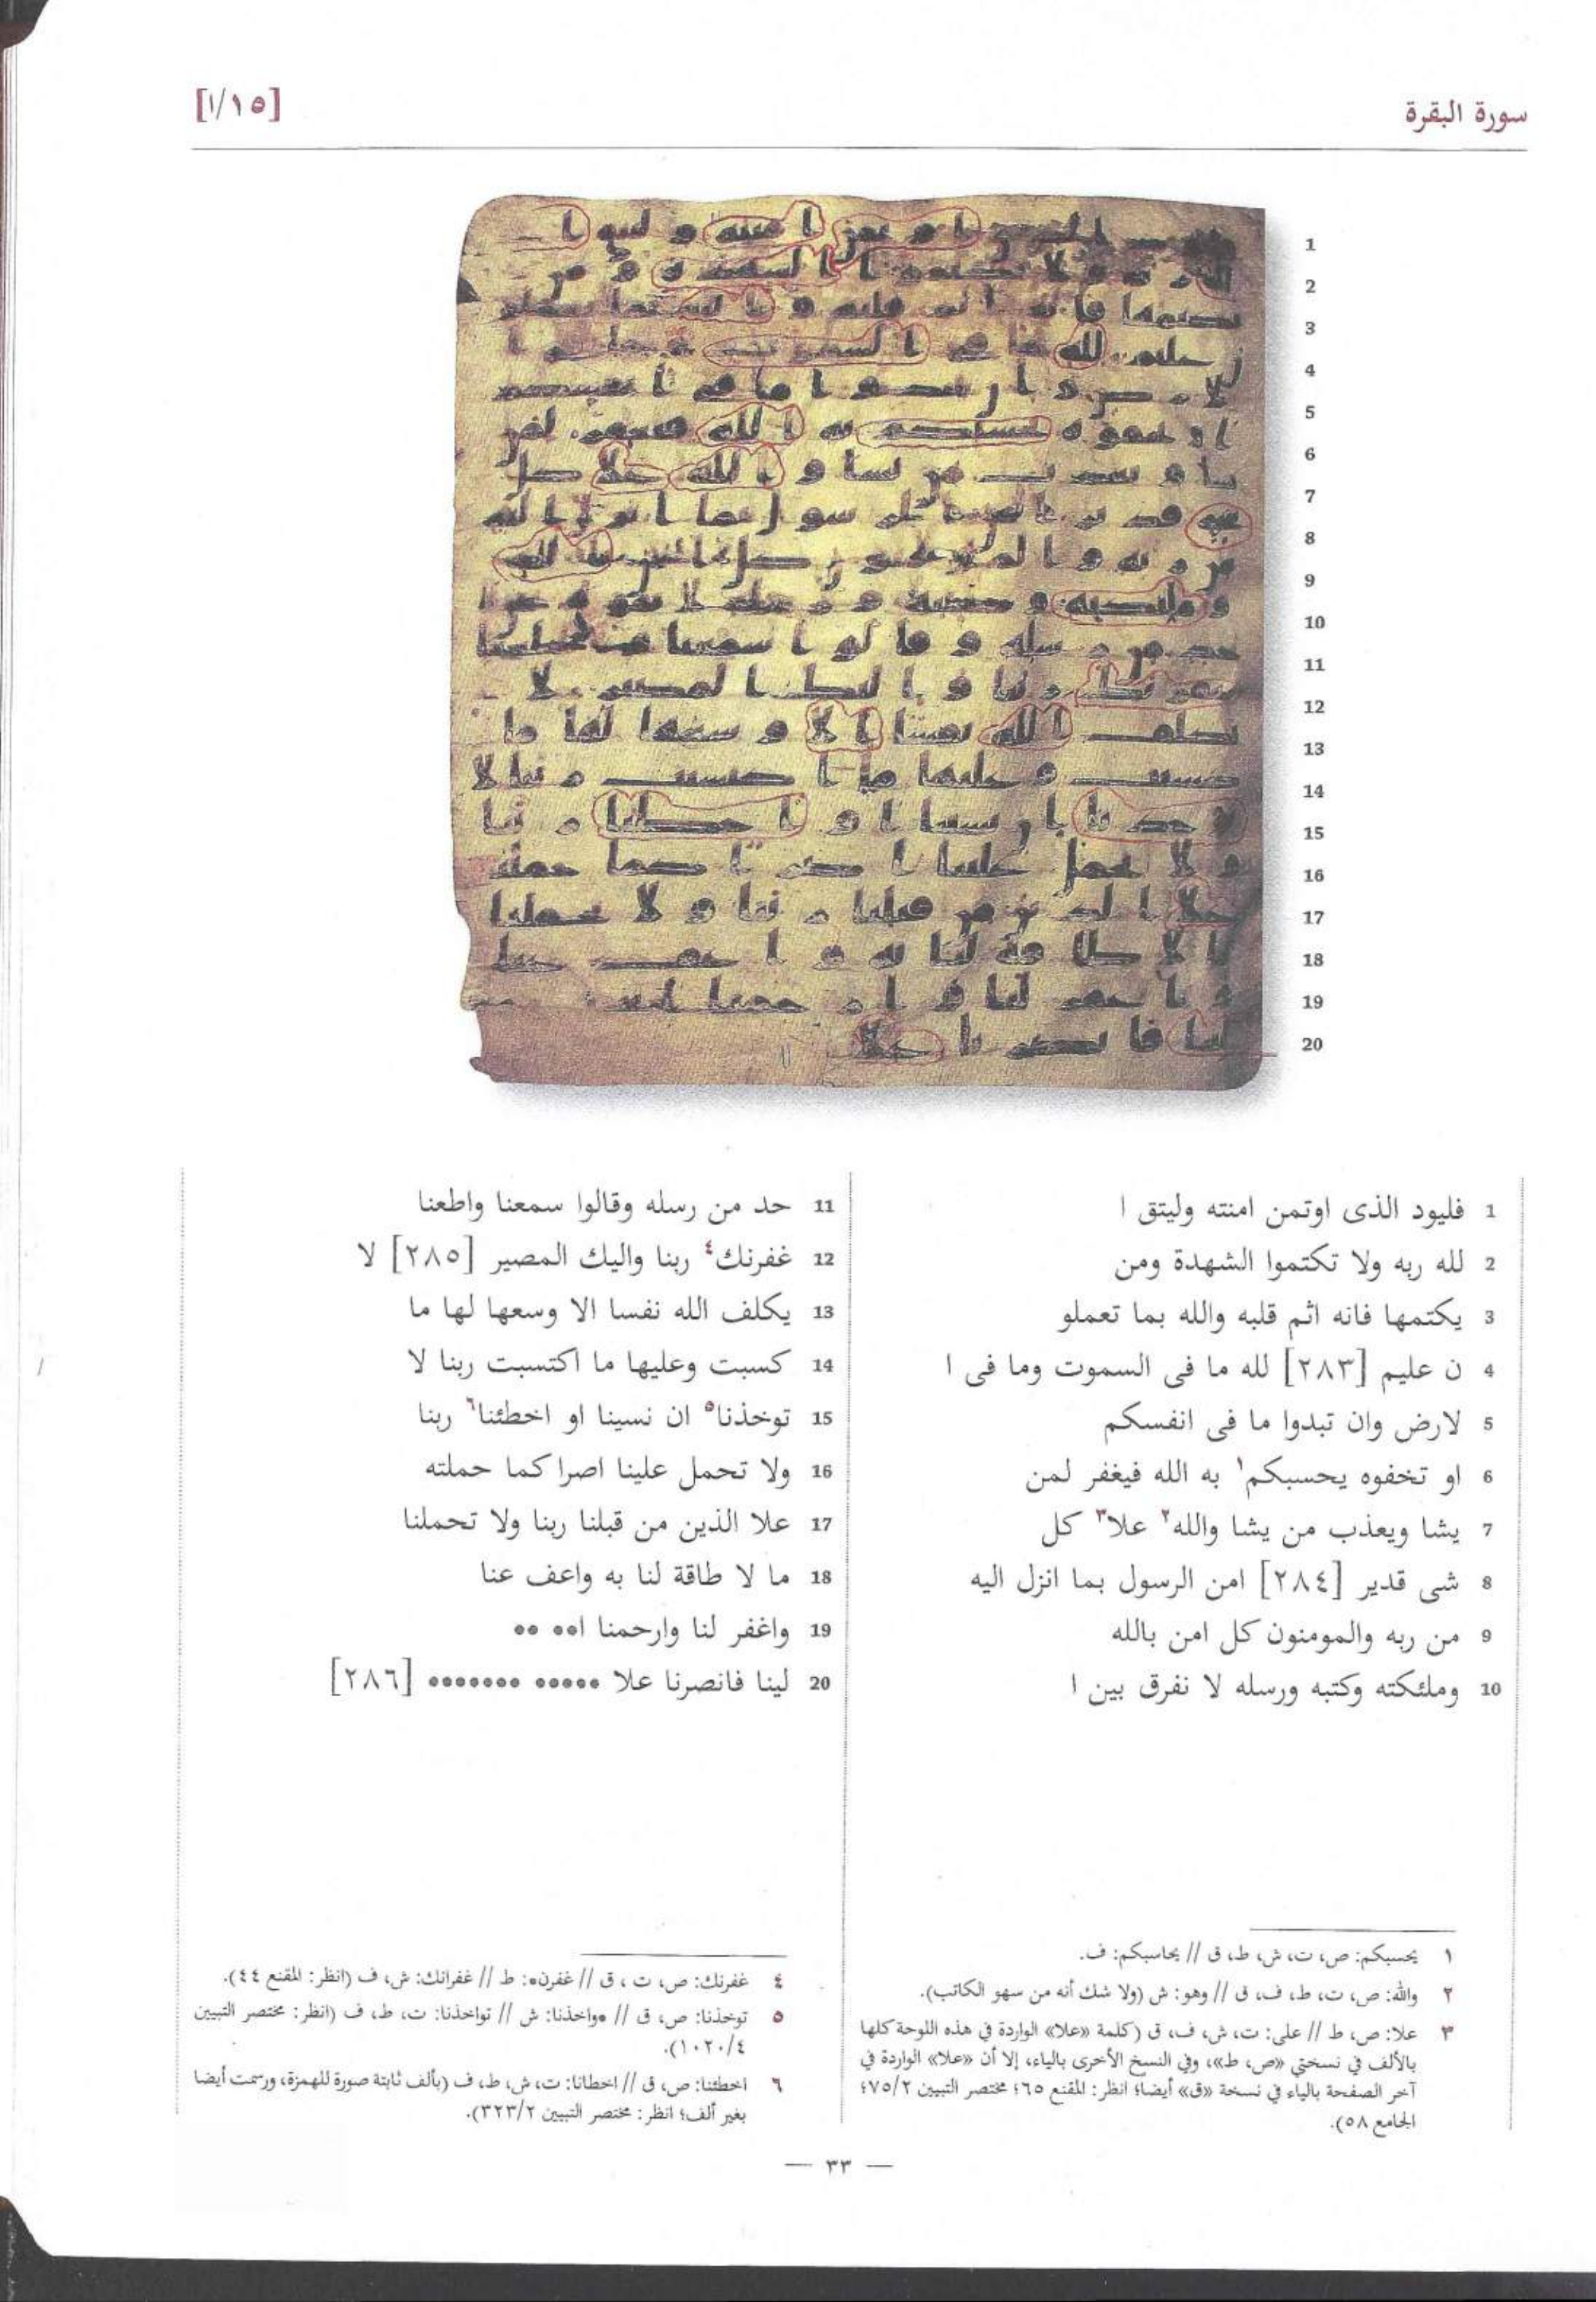 سورة البقرة
[١/١٥]
1 فليود الذى اوتمن امنته وليتق ا
2 لله ربه ولا تكتموا الشهدة ومن
3 يكتمها فانه اثم قلبه والله بما تعملو
4 ن عليم [٢٨٣] لله ما فى السموت وما فى ا
5 لارض وان تبدوا ما فى انفسكم
6 او تخفوه يحسبكم١ به الله فيغفر لمن
7 يشا ويعذب من يشا والله٢ علا٣ كل
8 شى قدير [٢٨٤] امن الرسول بما انزل اليه
9 من ربه والمومنون كل امن بالله
10 وملئكته وكتبه ورسله لا نفرق بين ا
11 حد من رسله وقالوا سمعنا واطعنا
12 غفرنك٤ ربنا واليك المصير [٢٨٥] لا
13 يكلف الله نفسا الا وسعها لها ما
14 كسبت وعليها ما اكتسبت ربنا لا
15 توخذنا٥ ان نسينا او اخطئنا٦ ربنا
16 ولا تحمل علينا اصرا كما حملته
17 علا الذين من قبلنا ربنا ولا تحملنا
18 ما لا طاقة لنا به واعف عنا
19 واغفر لنا وارحمنا ا•• ••
20 لينا فانصرنا علا ••••• ••••••• [٢٨٦]
١ يحسبكم: ص، ت، ش، ط، ق // يحاسبكم: ف.
٢ والله: ص، ت، ط، ف، ق // وهو: ش (ولا شك أنه من سهو الكاتب).
٣ علا: ص، ط // على: ت، ش، ف، ق (كلمة «علا» الواردة في هذه اللوحة كلها
بالألف في نسختي «ص، ط»، وفي النسخ الأخرى بالياء، إلا أن «علا» الواردة في
آخر الصفحة بالياء في نسخة «ق» أيضا؛ انظر: المقنع ٦٥؛ مختصر التبيين ٧٥/٢؛
الجامع ٥٨).
٤ غفرنك: ص، ت، ق // غفرن•: ط // غفرانك: ش، ف (انظر: المقنع ٤٤).
٥ توخذنا: ص، ق // •واخذنا: ش // تواخذنا: ت، ط، ف (انظر: مختصر التبيين
١٠٢٠/٤).
٦ اخطئنا: ص، ق // اخطانا: ت، ش، ط، ف (بألف ثابتة صورة للهمزة، ورسمت أيضا
بغير ألف؛ انظر: مختصر التبيين ٣٢٣/٢).
— ٣٣ —